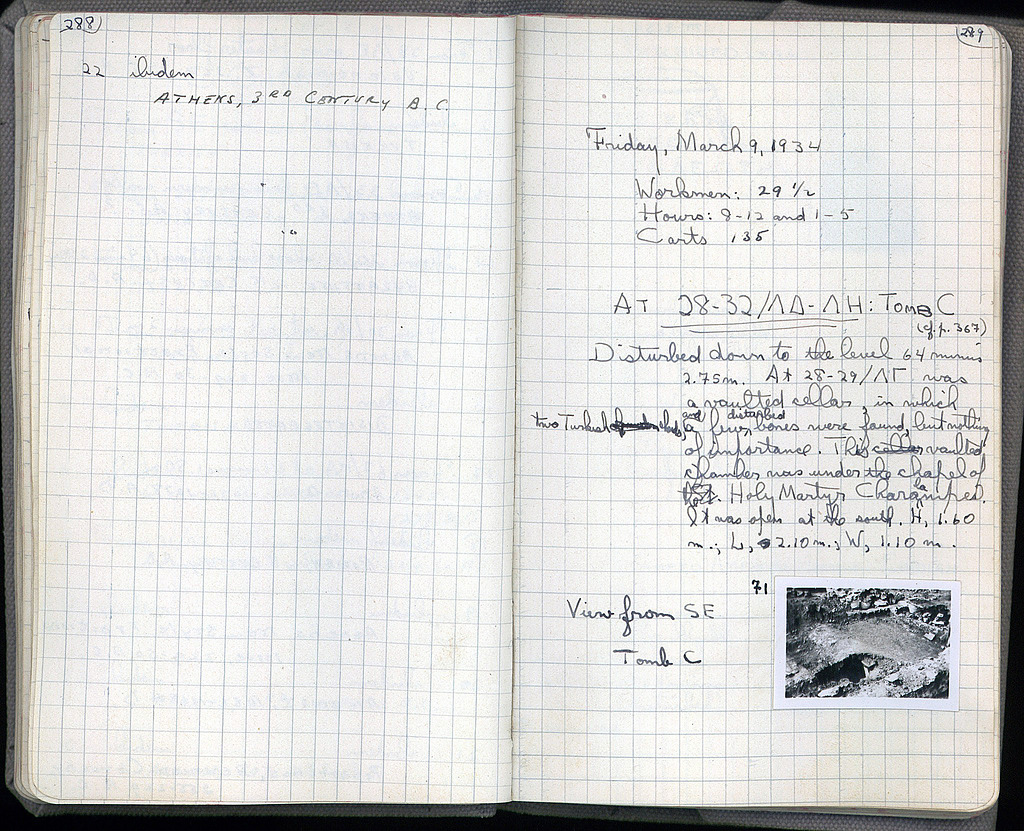 288
22 ibidem
ATHENS, 3RD CENTURY B.C.
289
Friday, March 9, 1934
Workmen: 29 1/2
Hours: 8-12 and 1-5
Carts 135
AT 28-32/ΛΔ-ΛΗ: TOMB C
(cf. p. 367)
Disturbed down to the level 64 minus
2.75m. At 28-29/ΛΓ was
a vaulted cellar, in which
two Turkish and a few disturbed bones were found, but nothing
of importance. This vaulted
chamber was under the chapel of
Holy Martyr Charalampes.
It was open at the south. H, 1.60
m.; L, 2.10 m.; W, 1.10 m.
71
View from SE
Tomb C